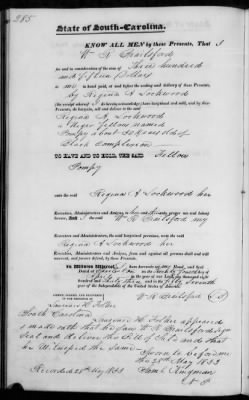 285
State of South-Carolina.
KNOW ALL MEN by these Presents, That I
Wm R Brailsford
for and in consideration of the sum of Three hundred
and fifteen Dollars
to me in hand paid, at and before the sealing and delivery of these Presents,
by Regina A Lockwood
(the receipt whereof I do hereby acknowledge) have bargained and sold, and by these
Presents, do bargain, sell and deliver to the said
Regina A. Lockwood
a Negro fellow named
Pompey about years old of
Black Complexion
TO HAVE AND TO HOLD, THE SAID Fellow
Pompey
unto the said Regina A Lockwood her
Executors, Administrators and Assigns, to her and their only proper use and behoof
forever. And I the said Wm R Brailsford my
Executors, Administrators and the said bargained premises, unto the said
Regina A Lockwood her
Executors, Administrators and Assigns, from and against all persons shall and will
warrant, and forever defend, by these Presents.
In Witness Whereof, I have hereunto set my Hand, and Seal
Dated at Charleston on the
in the year of our Lord one thousand eight
hundred and thirty three and in the fifty Seventh
of the Independence of the United States of America.
SIGNED, SEALED, AND DELIVERED
IN THE PRESENCE OF
Wm R Brailsford (LS)
South Carolina
appeared
made oath that he saw Wm R Brailsford sign
Seal and deliver this Bill of Sale and that
he Witnessed the Same
Sworn to before me
the 28th May 1833
Recorded 28th May 1833